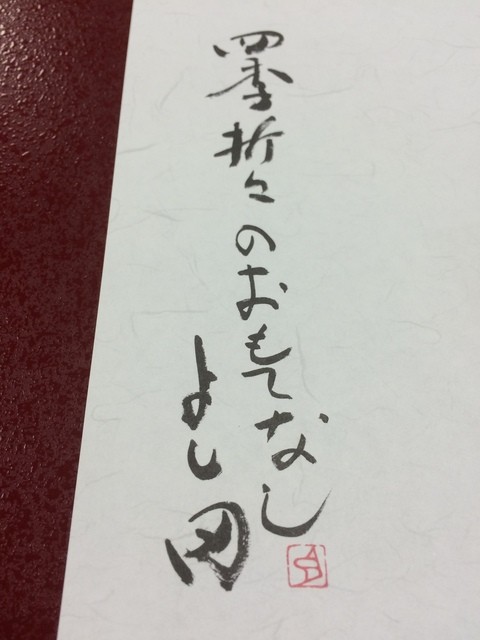 四季折々のおもてなし
よし田